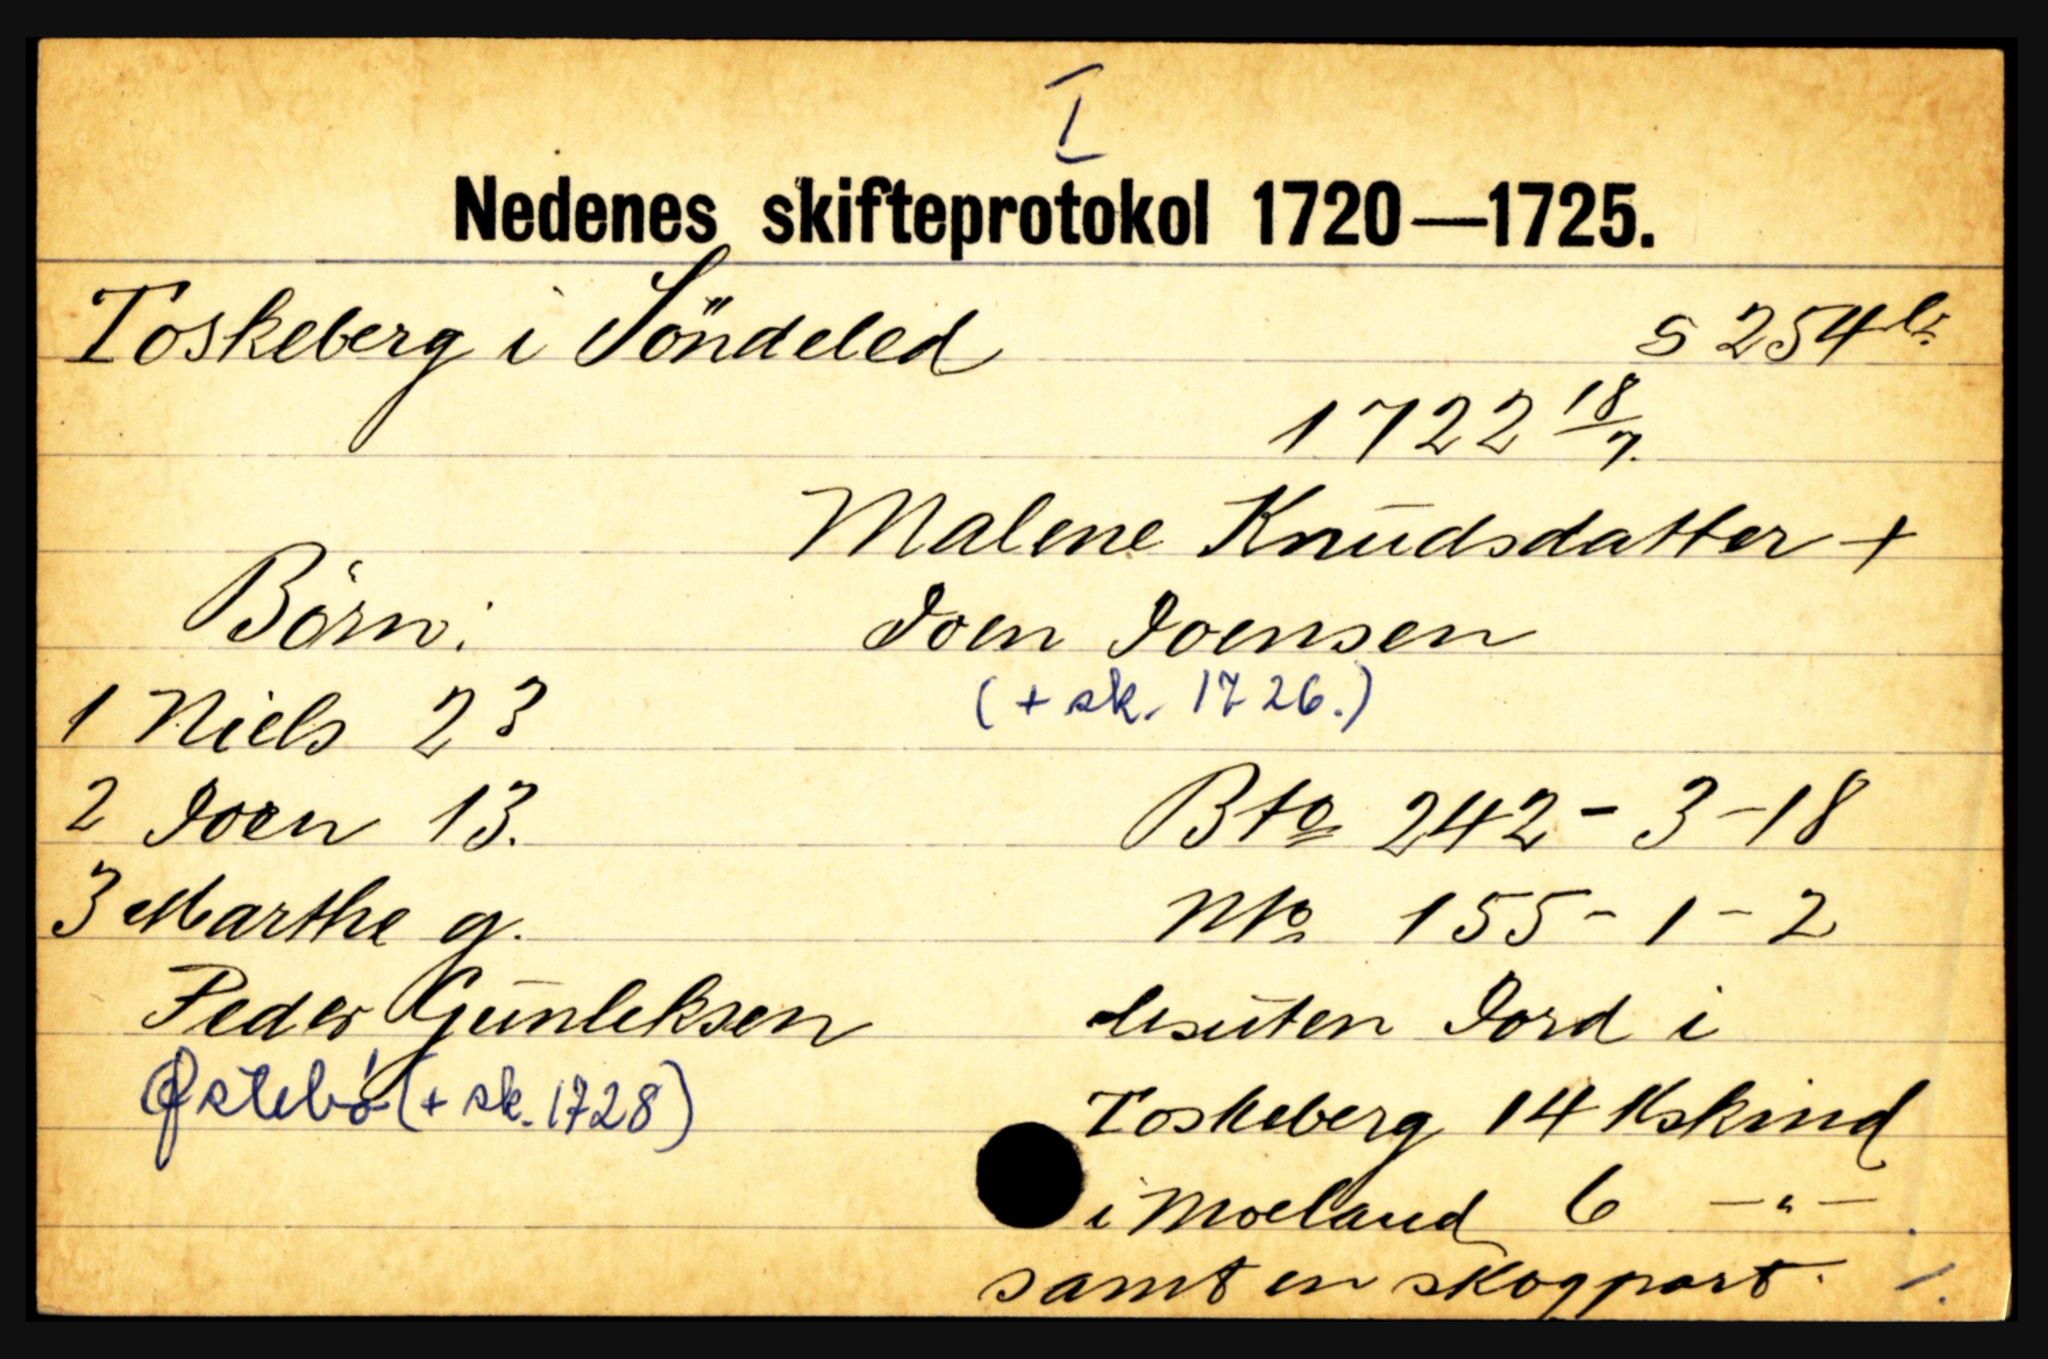 I
Nedenes skifteprotokol 1720—1725.
Toskeberg i Söndeled S 254 b.
1722 18/7.
Malene Knudsdatter +
Joen Joensen
(+ sk. 1726.)
Börn:
1 Niels 23
2 Joen 13.
3 Marthe g.
Peder Gunleksen
Østebø (+ sk. 1728)
Bto 242 - 3 - 18
Nto 155 - 1 - 2
desuten Jord i
Toskeberg 14 Kskind
i Moeland 6 —"—.
samt en skogpart. 1.